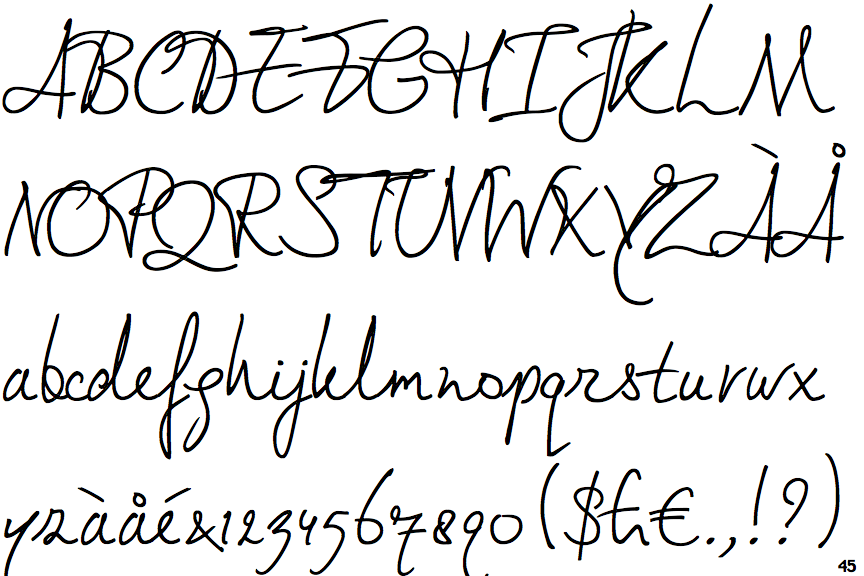 ABCDEFGHIJKLM
NOPQRSTUVWXYZÀÅ
abcdefghijklmnopqrstuvwx
yzàåé&1234567890($£€.,!?)
45